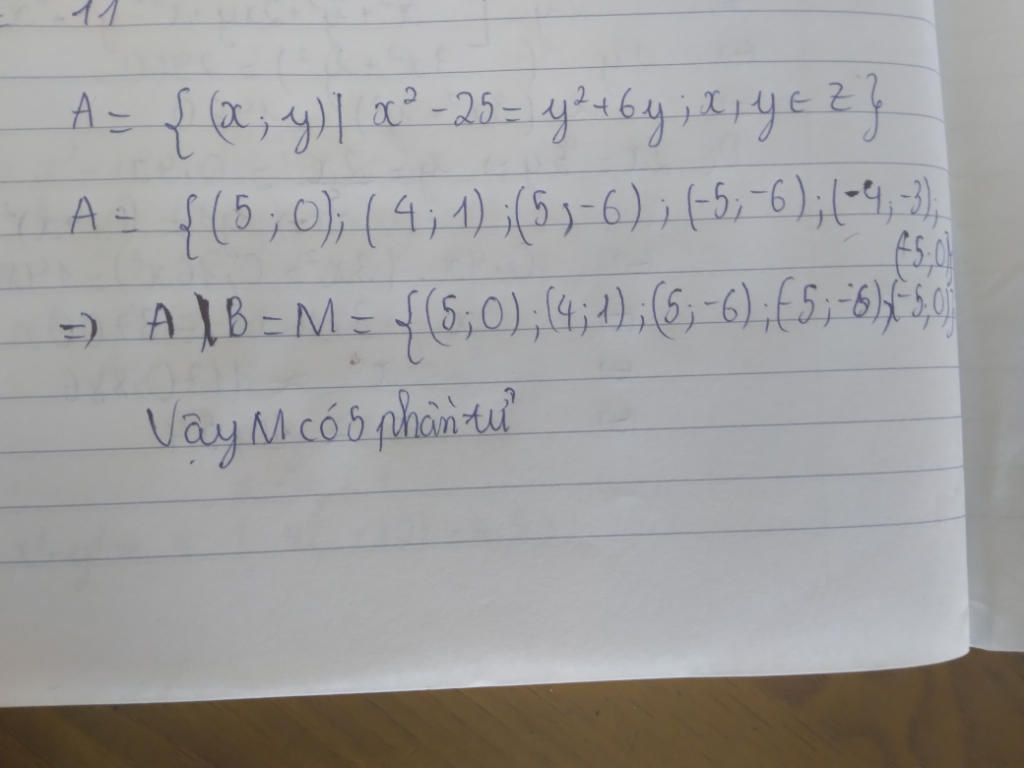 11
A = {(x; y)| x² - 25 = y² + 6y ; x, y ∈ Z}
A = {(5; 0); (4; 1); (5; -6); (-5; -6); (-4, -3);
(-5; 0)}
=> A \ B = M = {(5; 0); (4; 1); (5; -6); (-5; -6); (-5, 0)}
Vậy M có 5 phần tử